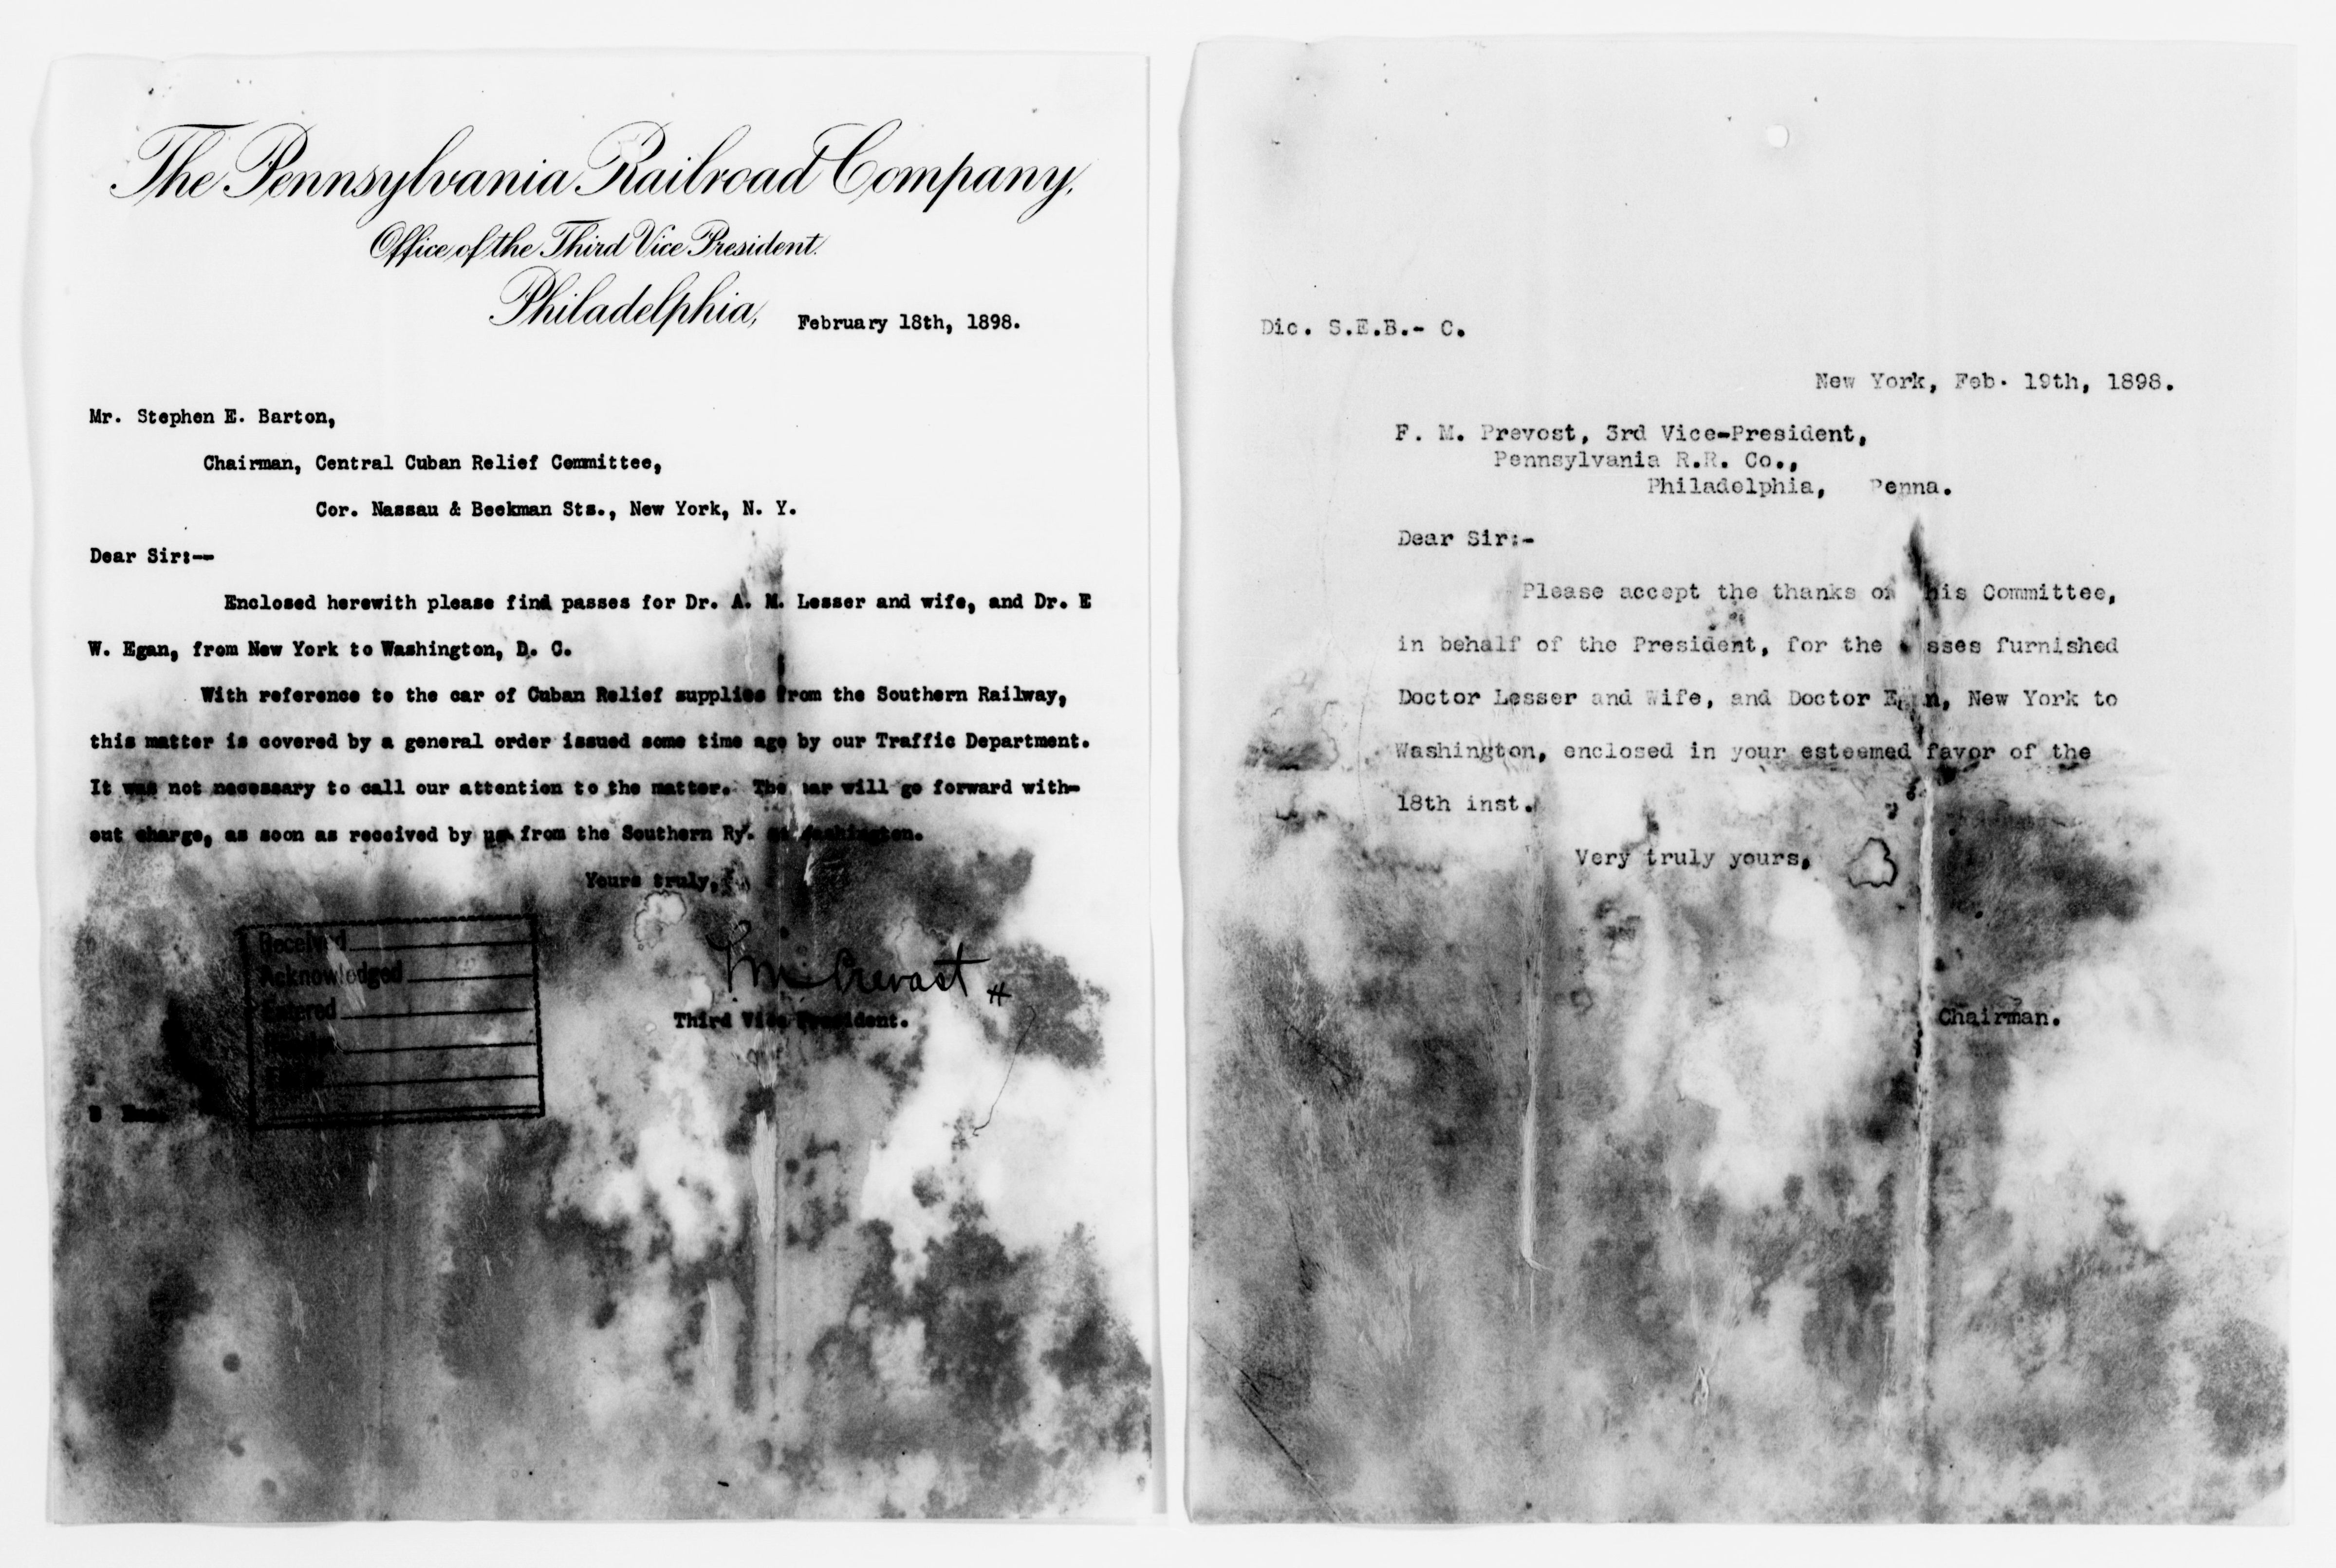 The Pennsylvania Railroad Company,
Office of the Third Vice President.
Philadelphia, February 18th, 1898.
Mr. Stephen E. Barton,
Chairman, Central Cuban Relief Committee,
Cor. Nassau & Beekman Sts., New York, N. Y.
Dear Sir:--
Enclosed herewith please find passes for Dr. A. M. Lesser and wife, and Dr. E
W. Egan, from New York to Washington, D. C.
With reference to the car of Cuban Relief supplies from the Southern Railway,
this matter is covered by a general order issued some time ago by our Traffic Department.
It was not necessary to call our attention to the matter. The car will go forward with-
out charge, as soon as received by us from the Southern Ry. at Washington.
Yours truly,
Received
Acknowledged
Entered
F M Prevost
Third Vice President.
Dic. S.E.B.- C.
New York, Feb. 19th, 1898.
F. M. Prevost, 3rd Vice-President,
Pennsylvania R.R. Co.,
Philadelphia, Penna.
Dear Sir:-
Please accept the thanks of this Committee,
in behalf of the President, for the passes furnished
Doctor Lesser and Wife, and Doctor Egan, New York to
Washington, enclosed in your esteemed favor of the
18th inst.
Very truly yours,
Chairman.